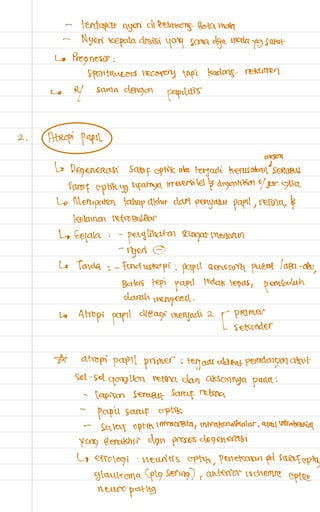 - terdapat nyeri di belakang bola mata
- Nyeri kepala disisi yang sama dgn mata yg sakit
↳ Prognosis :
Spontaneous recovery tapi kadang rekuren
↳ R/ sama dengan papilitis
2. Atropi Papil
akson
↳ Degenerasi saraf optik akn terjadi kerusakan serabut
saraf optik yg sifatnya irreversibel & digantikan o/ jar. glia.
↳ Merupakan tahap akhir dari penyakit papil, retina, &
kelainan retrobulbar
↳ Gejala : - penglihatan sangat menurun
- nyeri ⊖
↳ Tanda : - Funduskopi : papil berwarna pucat / abu-abu,
Batas tepi papil tidak tegas, pembuluh
darah mengecil.
↳ Atropi papil dibagi menjadi 2 primer
sekunder
☆ atropi papil primer : terjadi akibat peradangan akut
sel-sel ganglion retina dan aksonnya pada :
- lapisan serabut saraf retina
- papil saraf optik
- saraf optik intraorbita, intrakanalikular, atau intrakranial
yang berakhir dgn proses degenerasi
↳ etiologi : neuritis optik, penekanan pd saraf optik,
glaukoma (plg sering), anterior ischemic optic
neuropathy